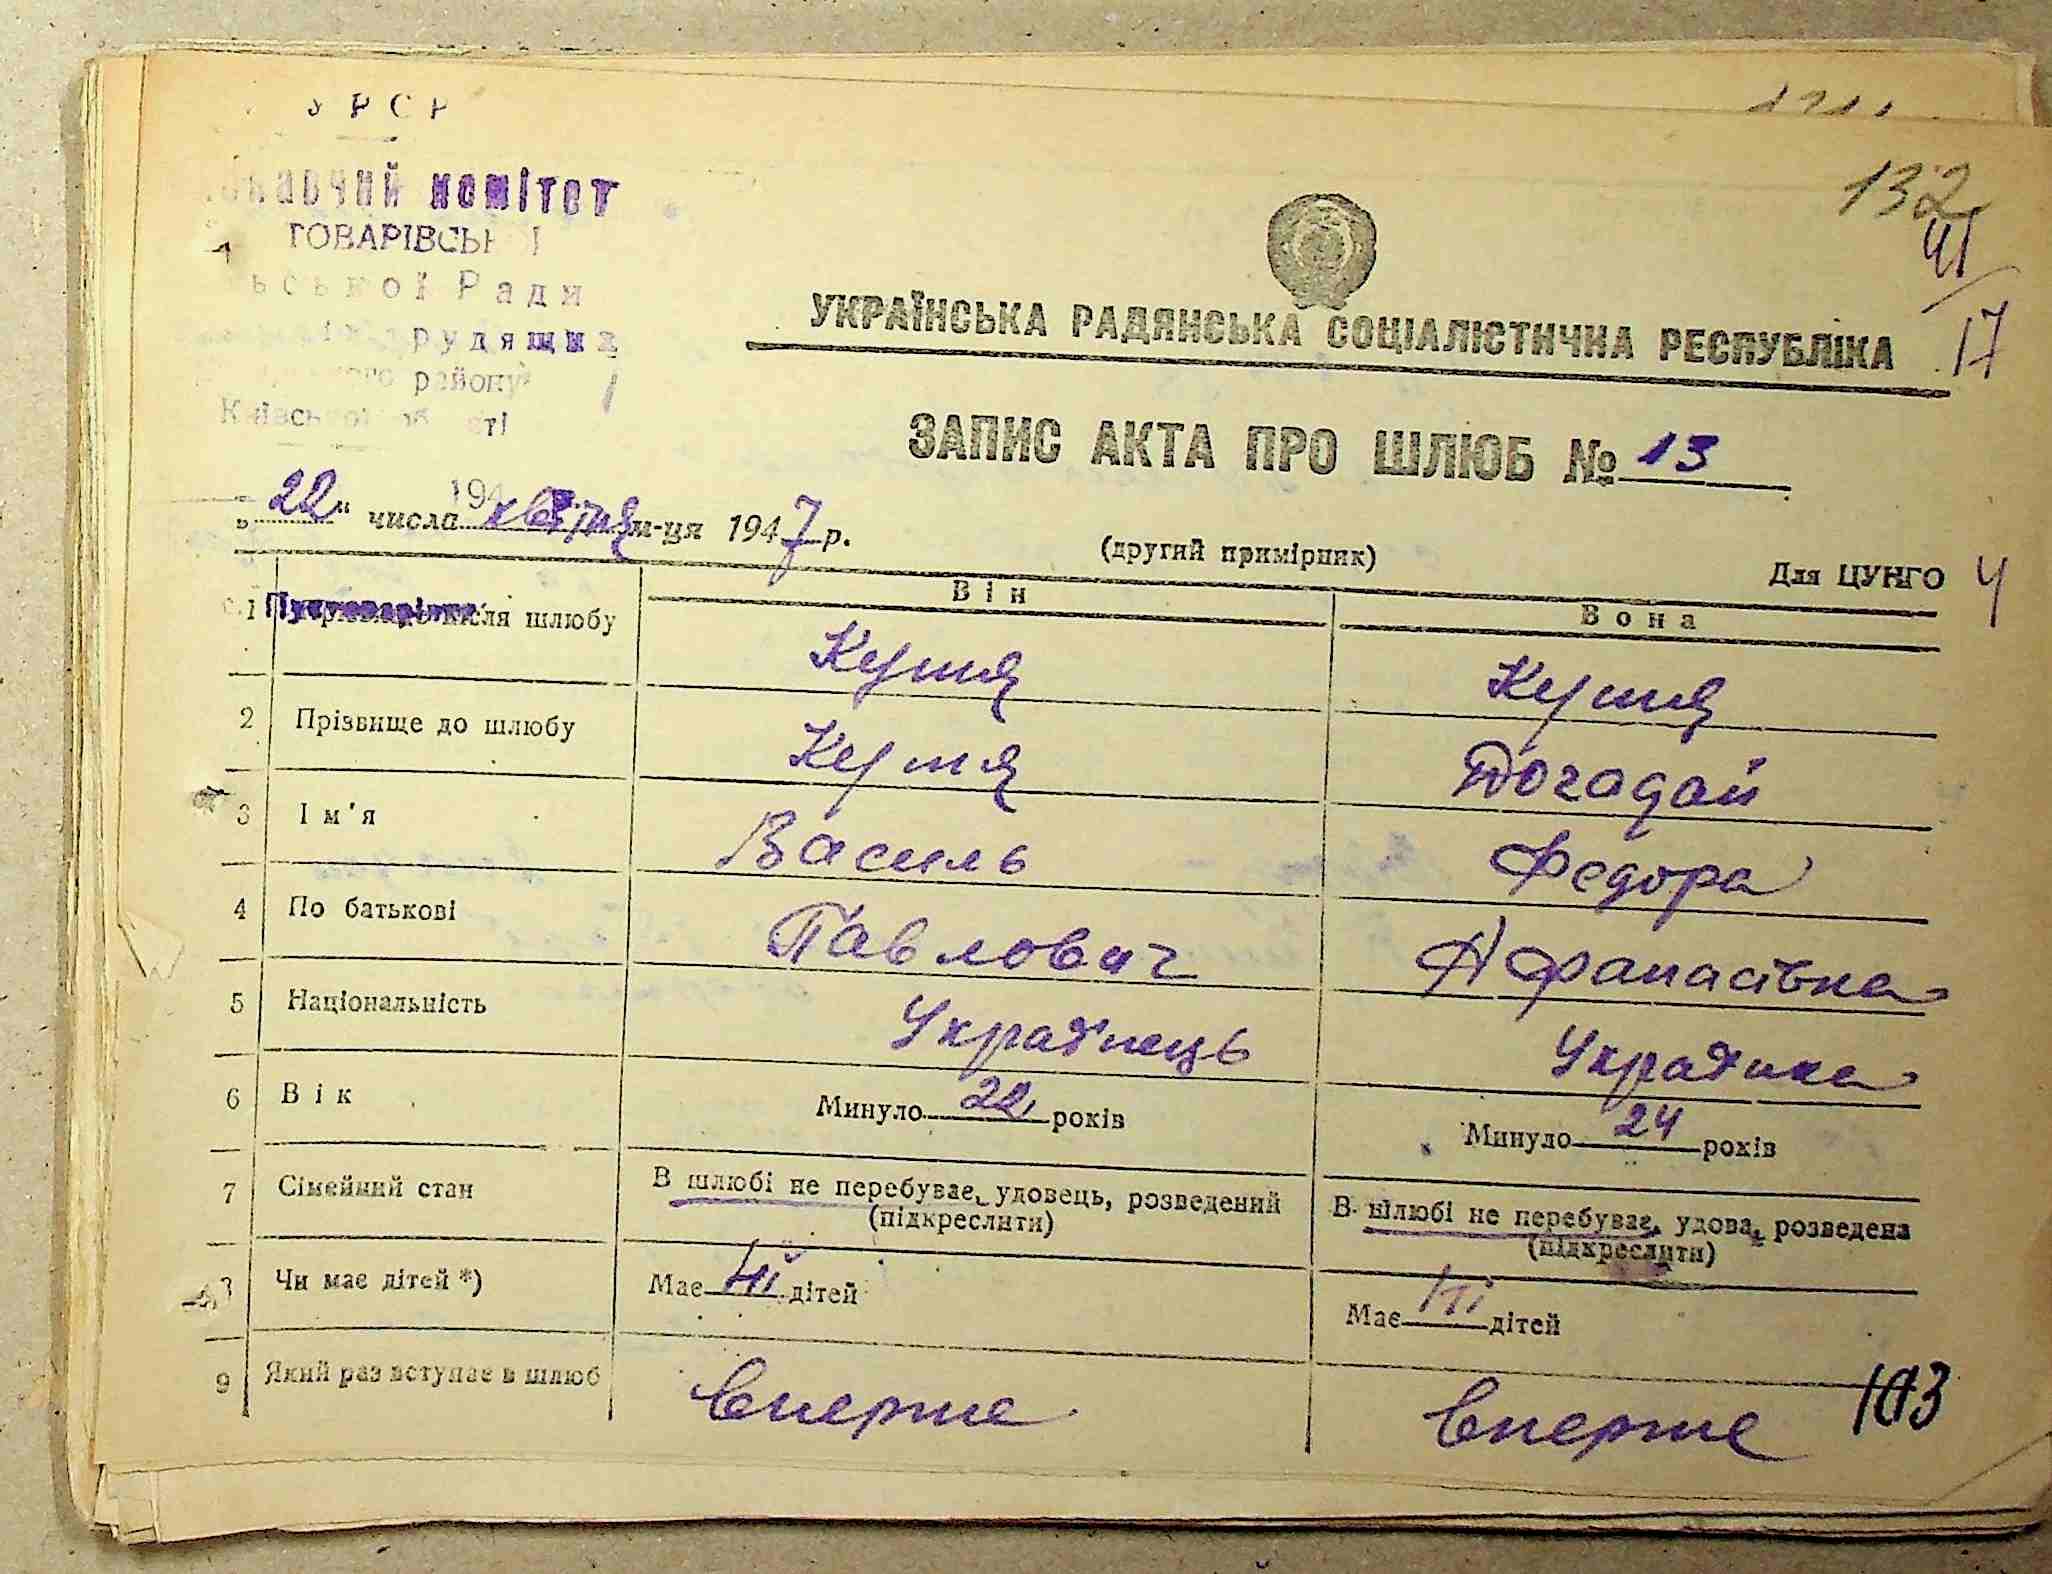 УРСР
132
комітет
41
ТОВАРІВСЬКОЇ
17
Ради
трудящих
району
Київської області
УКРАЇНСЬКА РАДЯНСЬКА СОЦІАЛІСТИЧНА РЕСПУБЛІКА
ЗАПИС АКТА ПРО ШЛЮБ № 13
194
„22" числа квітня м-ця 1947 р.
(другий примірник)
Для ЦУНГО 4
с. Пустоварівка
Він Вона
1 після шлюбу Кушя Кушя
2 Прізвище до шлюбу Кушя Догадай
3 Ім'я Василь Федора
4 По батькові Павлович Афанасівна
5 Національність Українець Українка
6 Вік Минуло 22 років Минуло 24 років
7 Сімейний стан В шлюбі не перебуває, удовець, розведений (підкреслити) В шлюбі не перебуває, удова, розведена (підкреслити)
8 Чи має дітей *) Має Ні дітей Має Ні дітей
9 Який раз вступає в шлюб Вперше Вперше
103